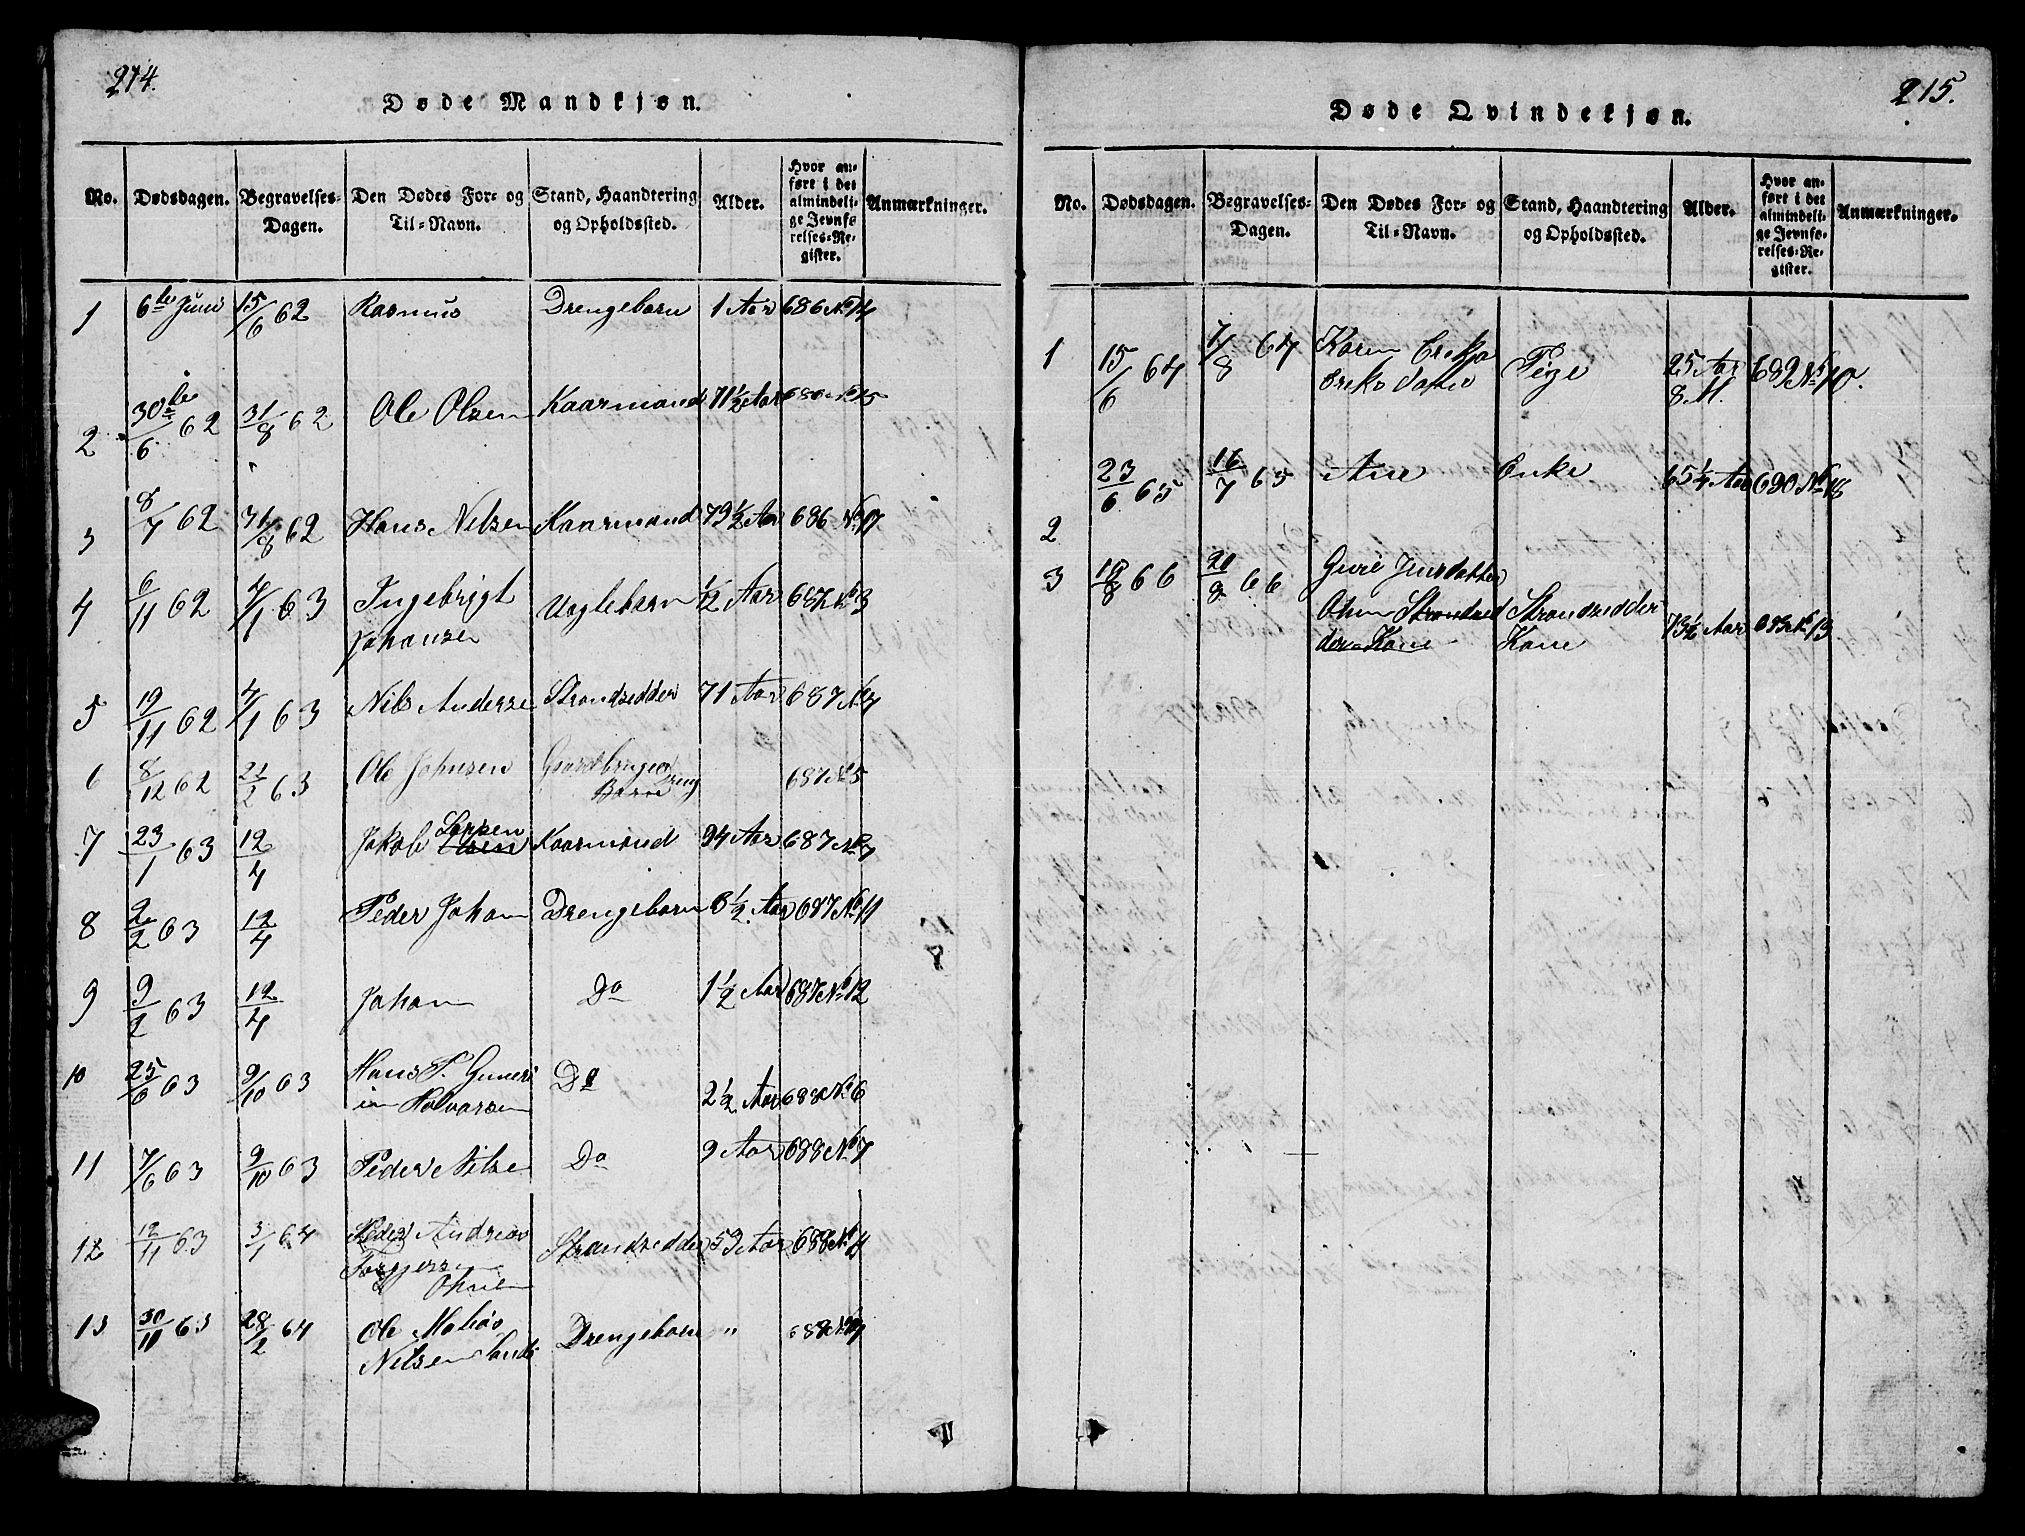 214.
Døde Mandkjøn.
No. Dødsdagen. Begravelses-Dagen. Den Dødes For- og Til-Navn. Stand, Haandtering og Opholdssted. Alder. Hvor anført i det almindelige Jevnførelses-Register. Anmærkninger.
1 6te Juni 15/6 62 Rasmus Drengebarn 1 Aar 686 No 14
2 30te/6 62 31/8 62 Ole Olsen Kaarmand 71 1/2 Aar 686 No 15
3 8/7 62 31/8 62 Hans Nilsen Kaarmand 79 1/2 Aar 686 No 17
4 6/11 62 4/1 63 Ingebrigt Johansen Uægtebarn 1/2 Aar 687 No 3
5 19/11 62 4/1 63 Nils Anderse Strandsidder 71 Aar 687 No 4
6 8/12 62 21/2 63 Ole Johnsen Gaardbruger Barn Dreng 687 No 5
7 23/1 63 12/4 Jakob Larsen Kaarmand 94 Aar 687 No
8 2/2 63 12/4 Peder Johan Drengebarn 3 1/2 Aar 687 No 11
9 9/2 63 12/4 Johan Do 1 1/2 Aar 687 No 12
10 25/6 63 9/10 63 Hans P. Guneri
in Halvorsen Do 2 1/2 Aar 688 No 6
11 7/6 63 9/10 63 Peder Nilse Do 9 Aar 688 No 7
12 12/11 63 3/1 64 Peder Andreas Torgjersen Strandsidder 59 Aar 688 No
13 30/11 63 28/2 64 Ole Mathias
Nilsen Sands Drengebarn " 688 No
215.
Døde Qvindekjøn.
No. Dødsdagen. Begravelses-Dagen. Den Dødes For- og Til-Navn. Stand, Haandtering og Opholdssted. Alder. Hvor anført i det almindelige Jevnførelses-Register. Anmærkninger.
1 15/6 64 7/8 64 Karen Pige 25 Aar 8 M. 689 No 10.
2 23/6 65 16/7 65 Ane Enke 65 1/4 Aar 690 No 18
3 19/8 66 20/8 66 Guri Jensdatter
Strandsidder Kone 73 1/2 Aar No 13